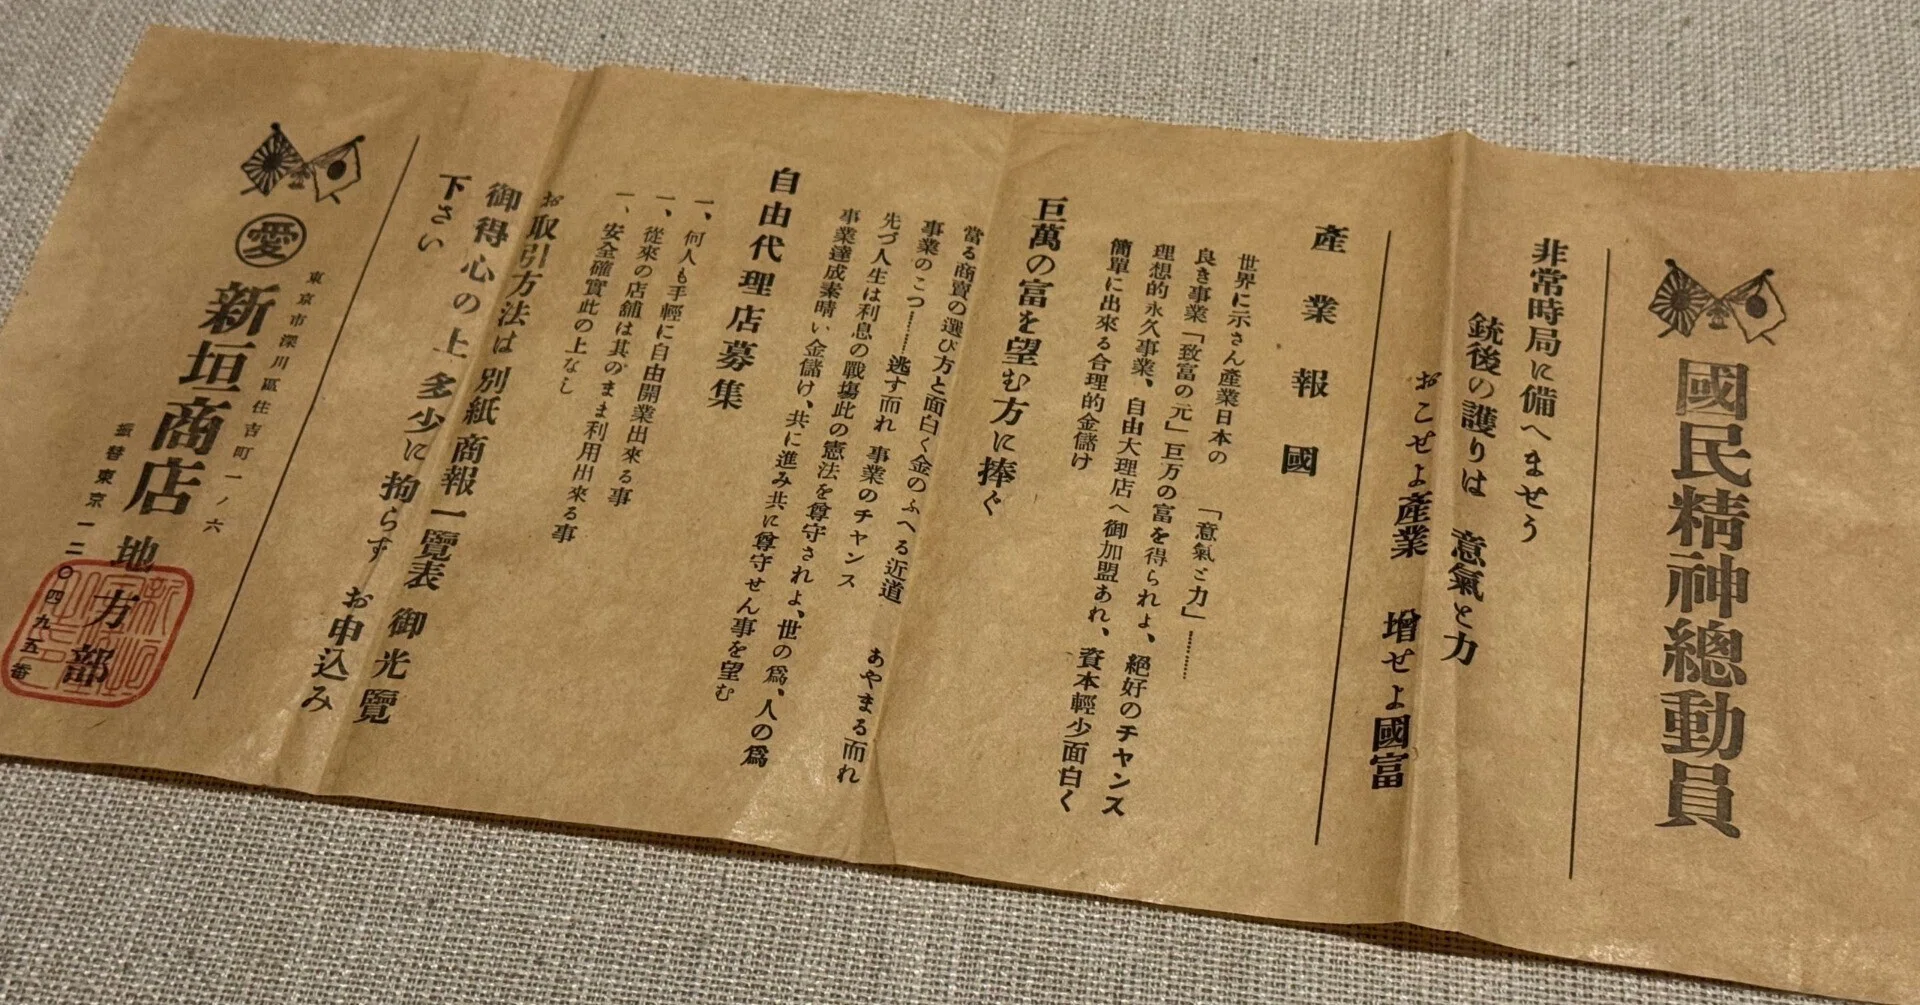 國民精神總動員
非常時局に備へませう
銃後の護りは 意氣と力
おこせよ產業 增せよ國富
產業報國
世界に示さん產業日本の 「意氣と力」………
良き事業「致富の元」巨万の富を得られよ、絕好のチャンス
理想的永久事業、自由大理店へ御加盟あれ、資本輕少面白く
簡單に出來る合理的金儲け
巨萬の富を望む方に捧ぐ
當る商賣の選び方と面白く金のふへる近道
事業のこつ………逃す而れ 事業のチャンス あやまる而れ
先づ人生は利息の戰塲此の憲法を尊守されよ、世の爲、人の爲
事業達成素晴い金儲け、共に進み共に尊守せん事を望む
自由代理店募集
一、何人も手輕に自由開業出來る事
一、從來の店舖は其のまま利用出來る事
一、安全確實此の上なし
お取引方法は別紙商報一覽表御光覽
御得心の上多少に拘らず お申込み
下さい
東京市深川區住吉町一ノ六
愛 新垣商店 地方部
振替東京一二〇四九五番